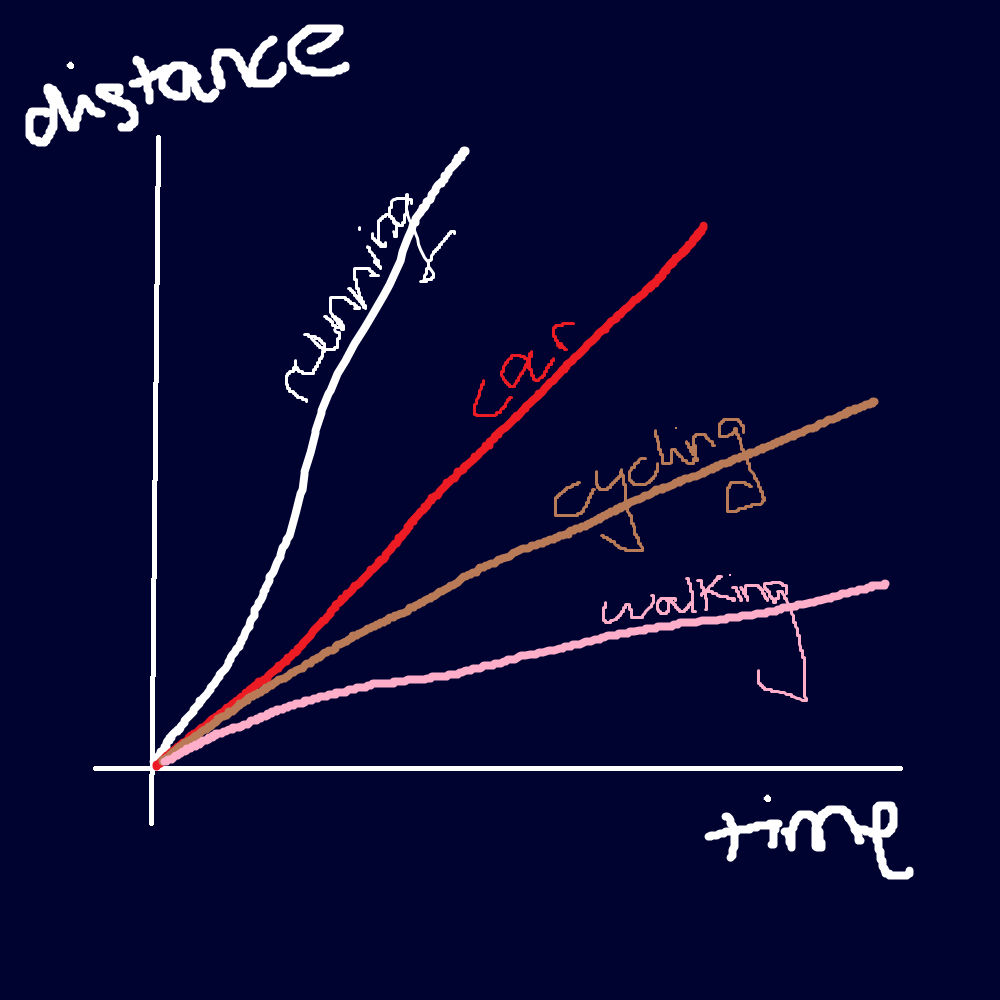 distance
running
car
cycling
walking
time